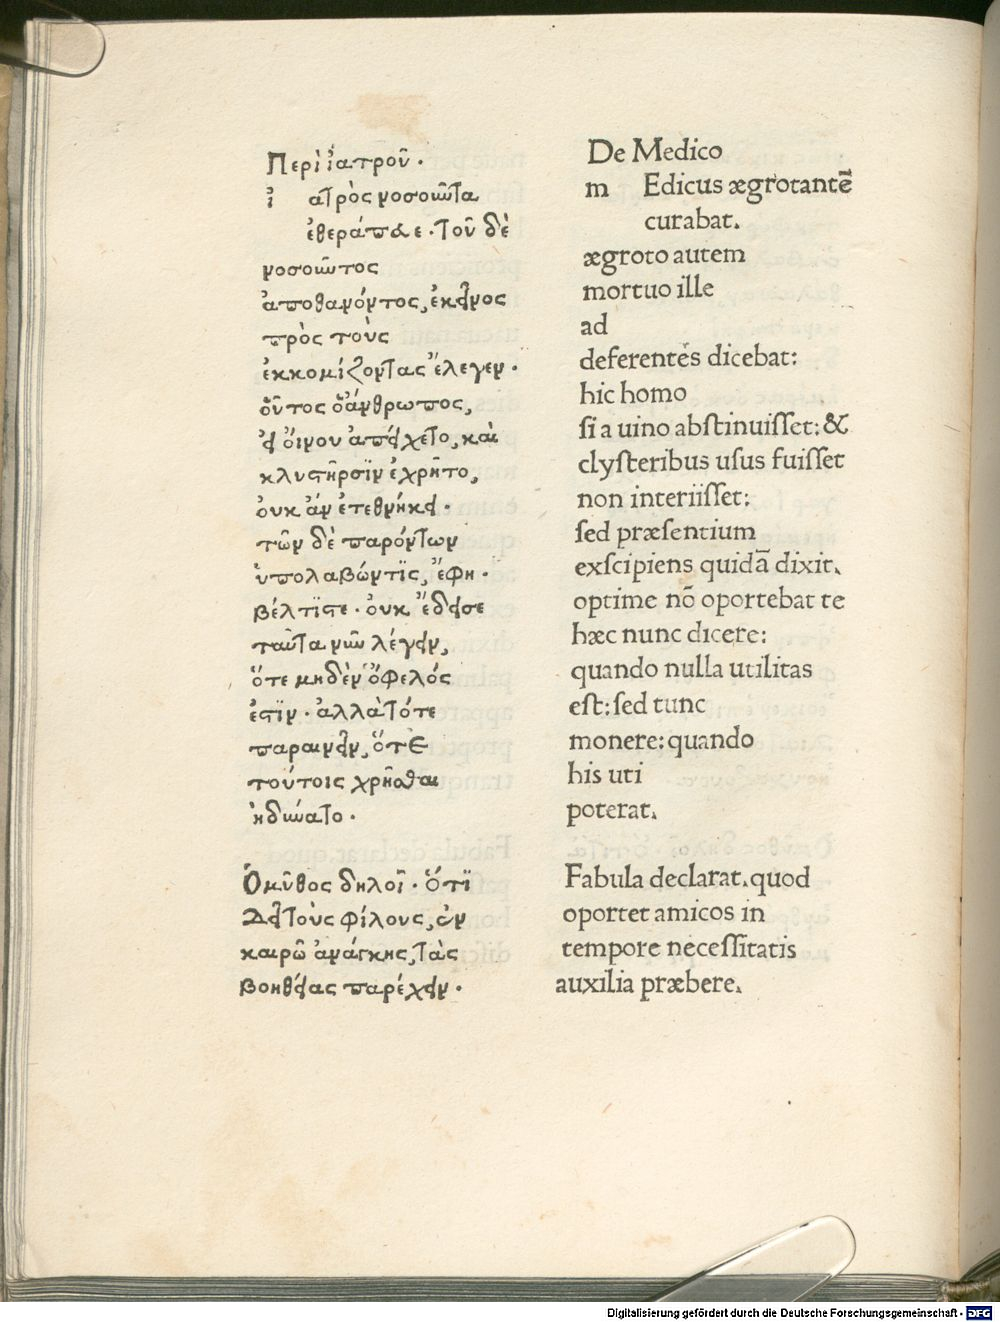 Περὶ ἰατροῦ.
ἰ ατρὸς νοσοῦντα
ἐθεράπευε. τοῦ δὲ
νοσοῦντος
ἀποθανόντος, ἐκεῖνος
πρὸς τοὺς
ἐκκομίζοντας ἔλεγεν.
οὗτος ὁ ἄνθρωπος,
εἰ ὄινου ἀπείχετο, και
κλυστῆρσϊν ἐχρῆτο,
ὀυκ ἀν ἐτεθνήκει.
τῶν δὲ παρόντων
ὑπολαβών τϊς, ἔφη.
βέλτϊστε. ὀυκ ἔδει σε
ταῦτα νῦν λέγειν,
ὅτε μηδὲν ὄφελός
ἐστϊν. ἀλλὰ τότε
παραινεῖν, ὅτε
τούτοις χρῆσθαι
ἠδύνατο.
Ὁ μῦθος δηλοῖ. ὅτϊ
δεῖ τοὺς φίλους, ἐν
καιρῶ ἀνάγκης, τὰς
βοηθείας παρέχειν.
De Medico
m Edicus ægrotantē
curabat.
ægroto autem
mortuo ille
ad
deferentes dicebat:
hic homo
si a uino abstinuisset: &
clysteribus usus fuisset
non interiisset:
sed præsentium
exscipiens quidā dixit.
optime nō oportebat te
hæc nunc dicere:
quando nulla utilitas
est: sed tunc
monere: quando
his uti
poterat.
Fabula declarat. quod
oportet amicos in
tempore necessitatis
auxilia præbere.
Digitalisierung gefördert durch die Deutsche Forschungsgemeinschaft - DFG